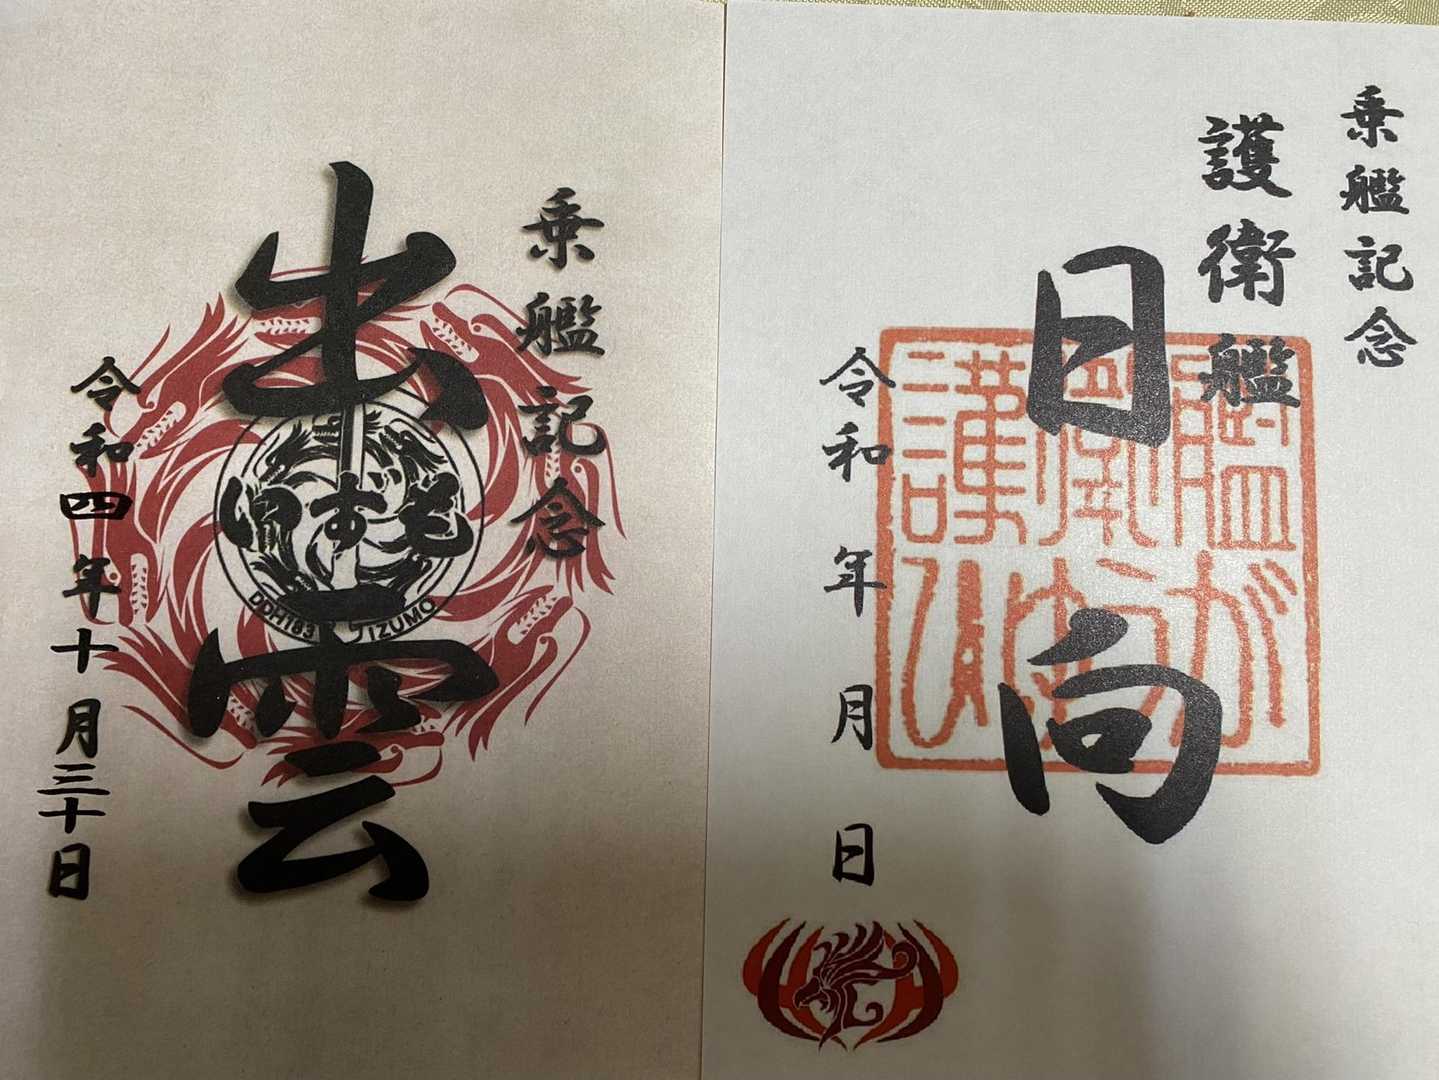 乗艦記念
護衛艦
日向
護衛艦
ひゅうが
令和 年 月 日
乗艦記念
出雲
いずも
DDH183 IZUMO
令和四年十月三十日